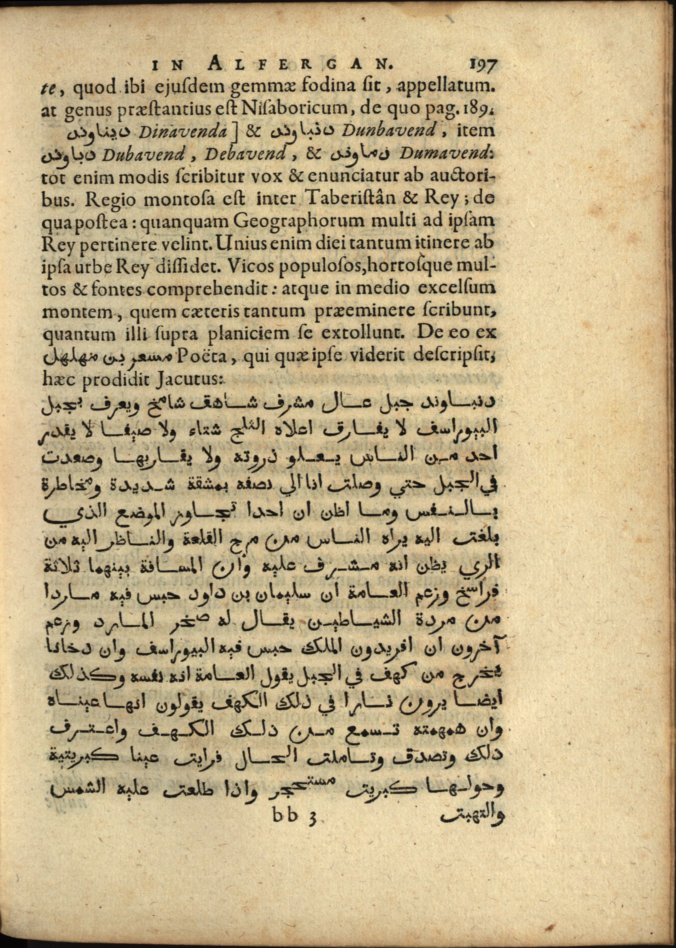 IN ALFERGAN. 197
te, quod ibi ejuſdem gemmæ fodina ſit, appellatum.
at genus præſtantius eſt Niſaboricum, de quo pag. 189.
ديناوند Dinavenda] & دنباوند Dunbavend, item
دباوند Dubavend, Debavend, & دماوند Dumavend:
tot enim modis ſcribitur vox & enunciatur ab auctori-
bus. Regio montoſa eſt inter Taberiſtân & Rey; de
qua poſtea: quanquam Geographorum multi ad ipſam
Rey pertinere velint. Unius enim diei tantum itinere ab
ipſa urbe Rey diſſidet. Vicos populoſos, hortoſque mul-
tos & fontes comprehendit: atque in medio excelſum
montem, quem cæteris tantum præeminere ſcribunt,
quantum illi ſupra planiciem ſe extollunt. De eo ex
مسعر بن مهلهل Poëta, qui quæ ipſe viderit deſcripſit,
hæc prodidit Jacutus:
دنباوند جبل عال مشرف شاهق شامخ ويعرف بجبل
البيوراسف لا يفارق اعلاه الثلج شتاء ولا صيفا لا يقدر
احد من الناس يعلو ذروته ولا يقاربها وصعدت
في الجبل حتي وصلت انا الي نصفه بمشقة شديدة ومخاطرة
بالنفس وما اظن ان احدا تجاوز الموضع الذي
بلغت اليه يراه الناس من مرج القلعة والناظر اليه من
الري يظن انه مشرف عليه وان المسافة بينهما ثلاثة
فراسخ وزعم العامة ان سليمان بن داود حبس فيه ماردا
من مردة الشياطين يقال له صخر المارد وزعم
آخرون ان افريدون الملك حبس فيه البيوراسف وان دخانا
يخرج من كهف في الجبل يقول العامة انه نفسه وكذلك
ايضا يرون نارا في ذلك الكهف يقولون انها عيناه
وان همهمته تسمع من ذلك الكهف واعترف
ذلك وتصدق وتاملت الحال فرايت عينا كبريتية
وحولها كبريت مستحجر واذا طلعت عليه الشمس
والتهبت
bb 3